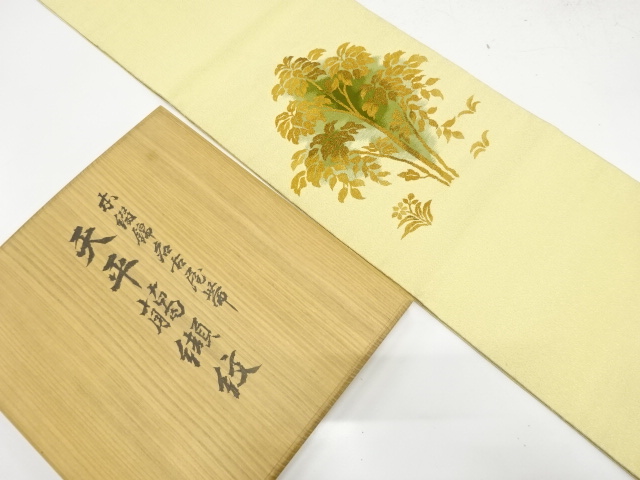 本綴錦名古屋帯
天平﨟纈紋